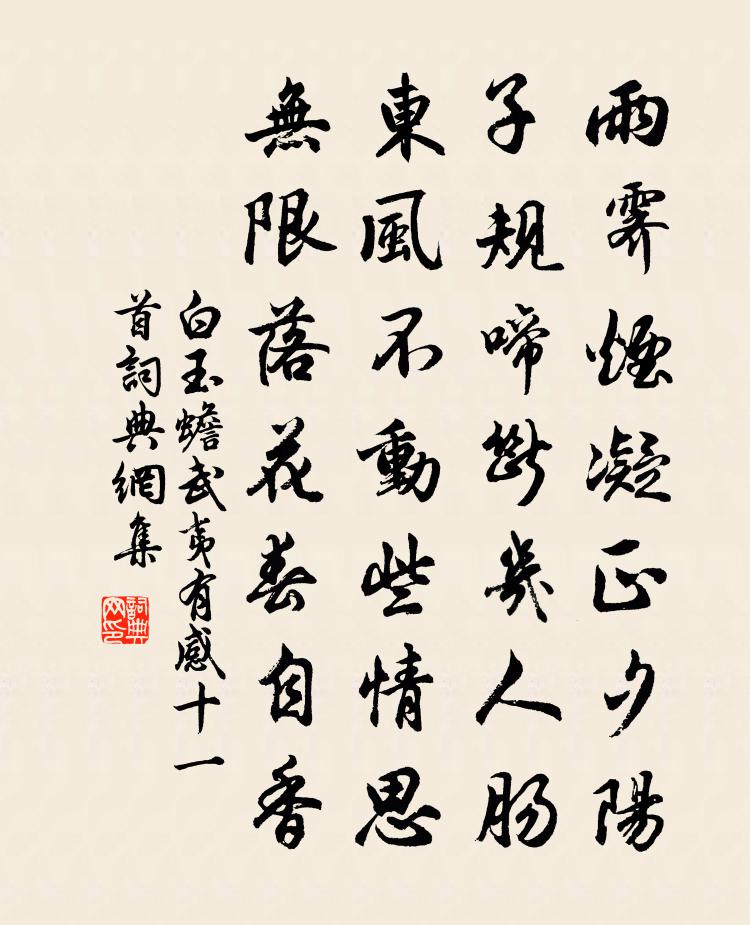 雨霽煙凝正夕陽
子規啼斷幾人腸
東風不動些情思
無限落花春自香
白玉蟾武夷有感十一
首詞典網集
詞典网印